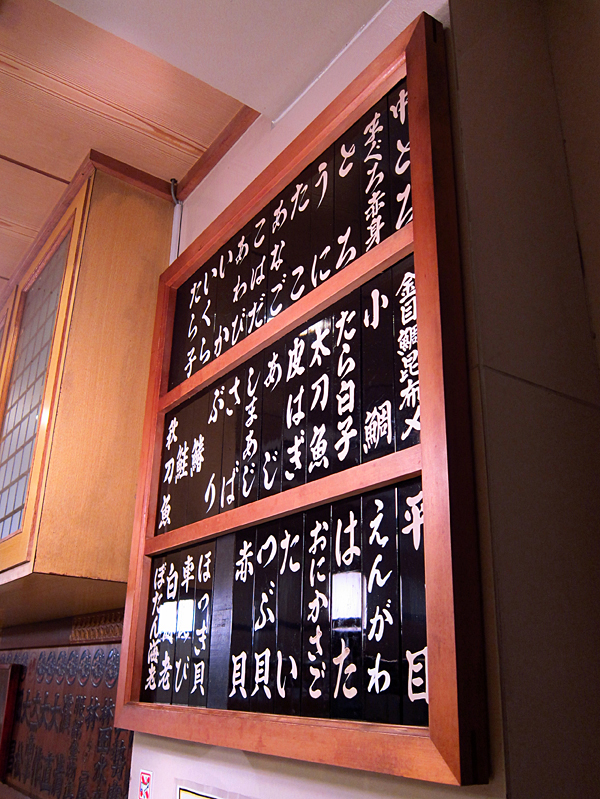 中とろ
まぐろ赤身
とろ
うに
たこ
あなご
こはだ
あわび
いか
いくら
たら子
金目鯛昆布〆
小鯛
たら白子
太刀魚
皮はぎ
あじ
しまあじ
さば
ぶり
鰆
鮭
秋刀魚
平目
えんがわ
はた
おにかさご
たい
つぶ貝
赤貝
ほっき貝
車えび
白海老
ぼたん海老